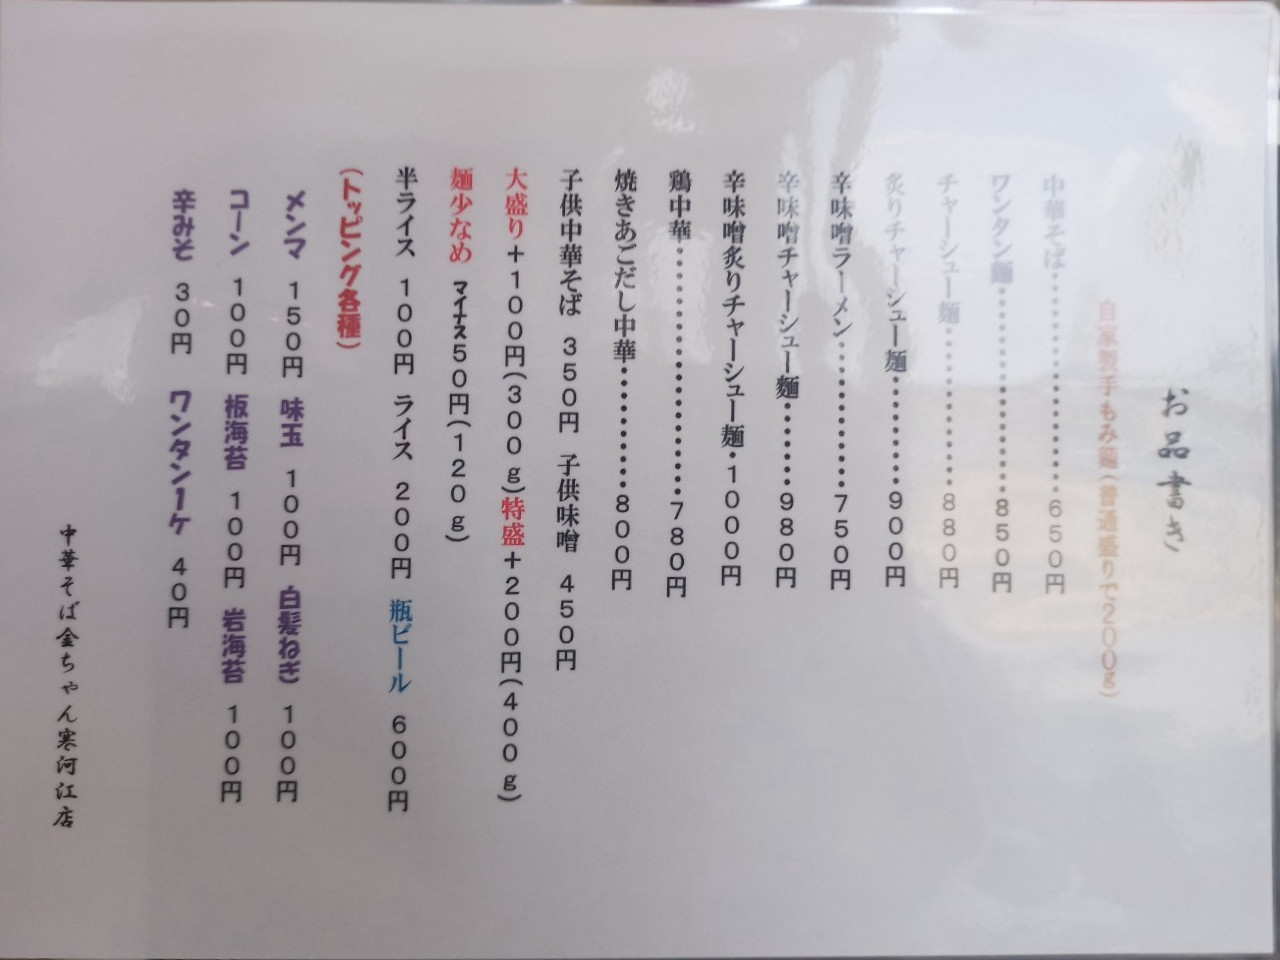 お品書き
自家製手もみ麺(普通盛りで200g)
中華そば・・・・・・・・・・・・・・・・650円
ワンタン麺・・・・・・・・・・・・・・・850円
チャーシュー麺・・・・・・・・・・・・880円
炙りチャーシュー麺・・・・・・・・・900円
辛味噌ラーメン・・・・・・・・・・・・750円
辛味噌チャーシュー麺・・・・・・・980円
辛味噌炙りチャーシュー麺・1000円
鶏中華・・・・・・・・・・・・・・・・・・・780円
焼きあごだし中華・・・・・・・・・・800円
子供中華そば 350円 子供味噌 450円
大盛り+100円(300g)特盛+200円(400g)
麺少なめ マイナス50円(120g)
半ライス 100円 ライス 200円 瓶ビール 600円
(トッピング各種)
メンマ 150円 味玉 100円 白髪ねぎ 100円
コーン 100円 板海苔 100円 岩海苔 100円
辛みそ 30円 ワンタン1ケ 40円
中華そば金ちゃん寒河江店